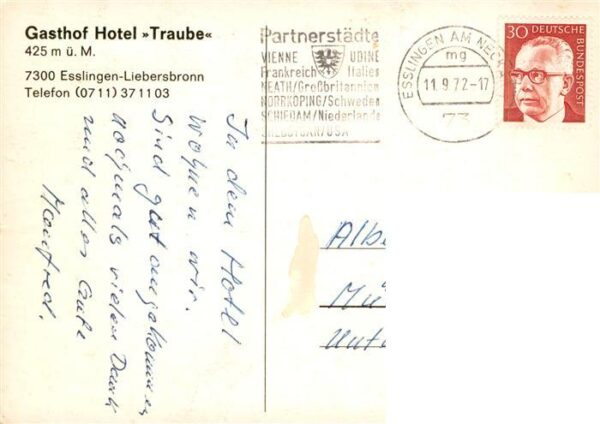 Gasthof Hotel »Traube«
425 m ü. M.
7300 Esslingen-Liebersbronn
Telefon (07 11) 37 11 03
In dem Hotel
wohnen wir.
Sind gut angekommen
nochmals vielen Dank
und alles Gute
Manfred.
Partnerstädte
VIENNE UDINE
Frankreich Italien
NEATH/Großbritannien
NORRKÖPING/Schweden
SCHIEDAM/Niederlande
SHEBOYGAN/USA
ESSLINGEN AM NECKAR
mg
11.9.72-17
73
30 DEUTSCHE
BUNDESPOST
Albe
Mü
Unte